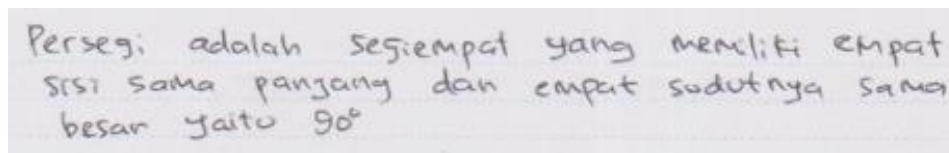 Persegi adalah segiempat yang memiliki empat
sisi sama panjang dan empat sudutnya sama
besar yaitu 90°